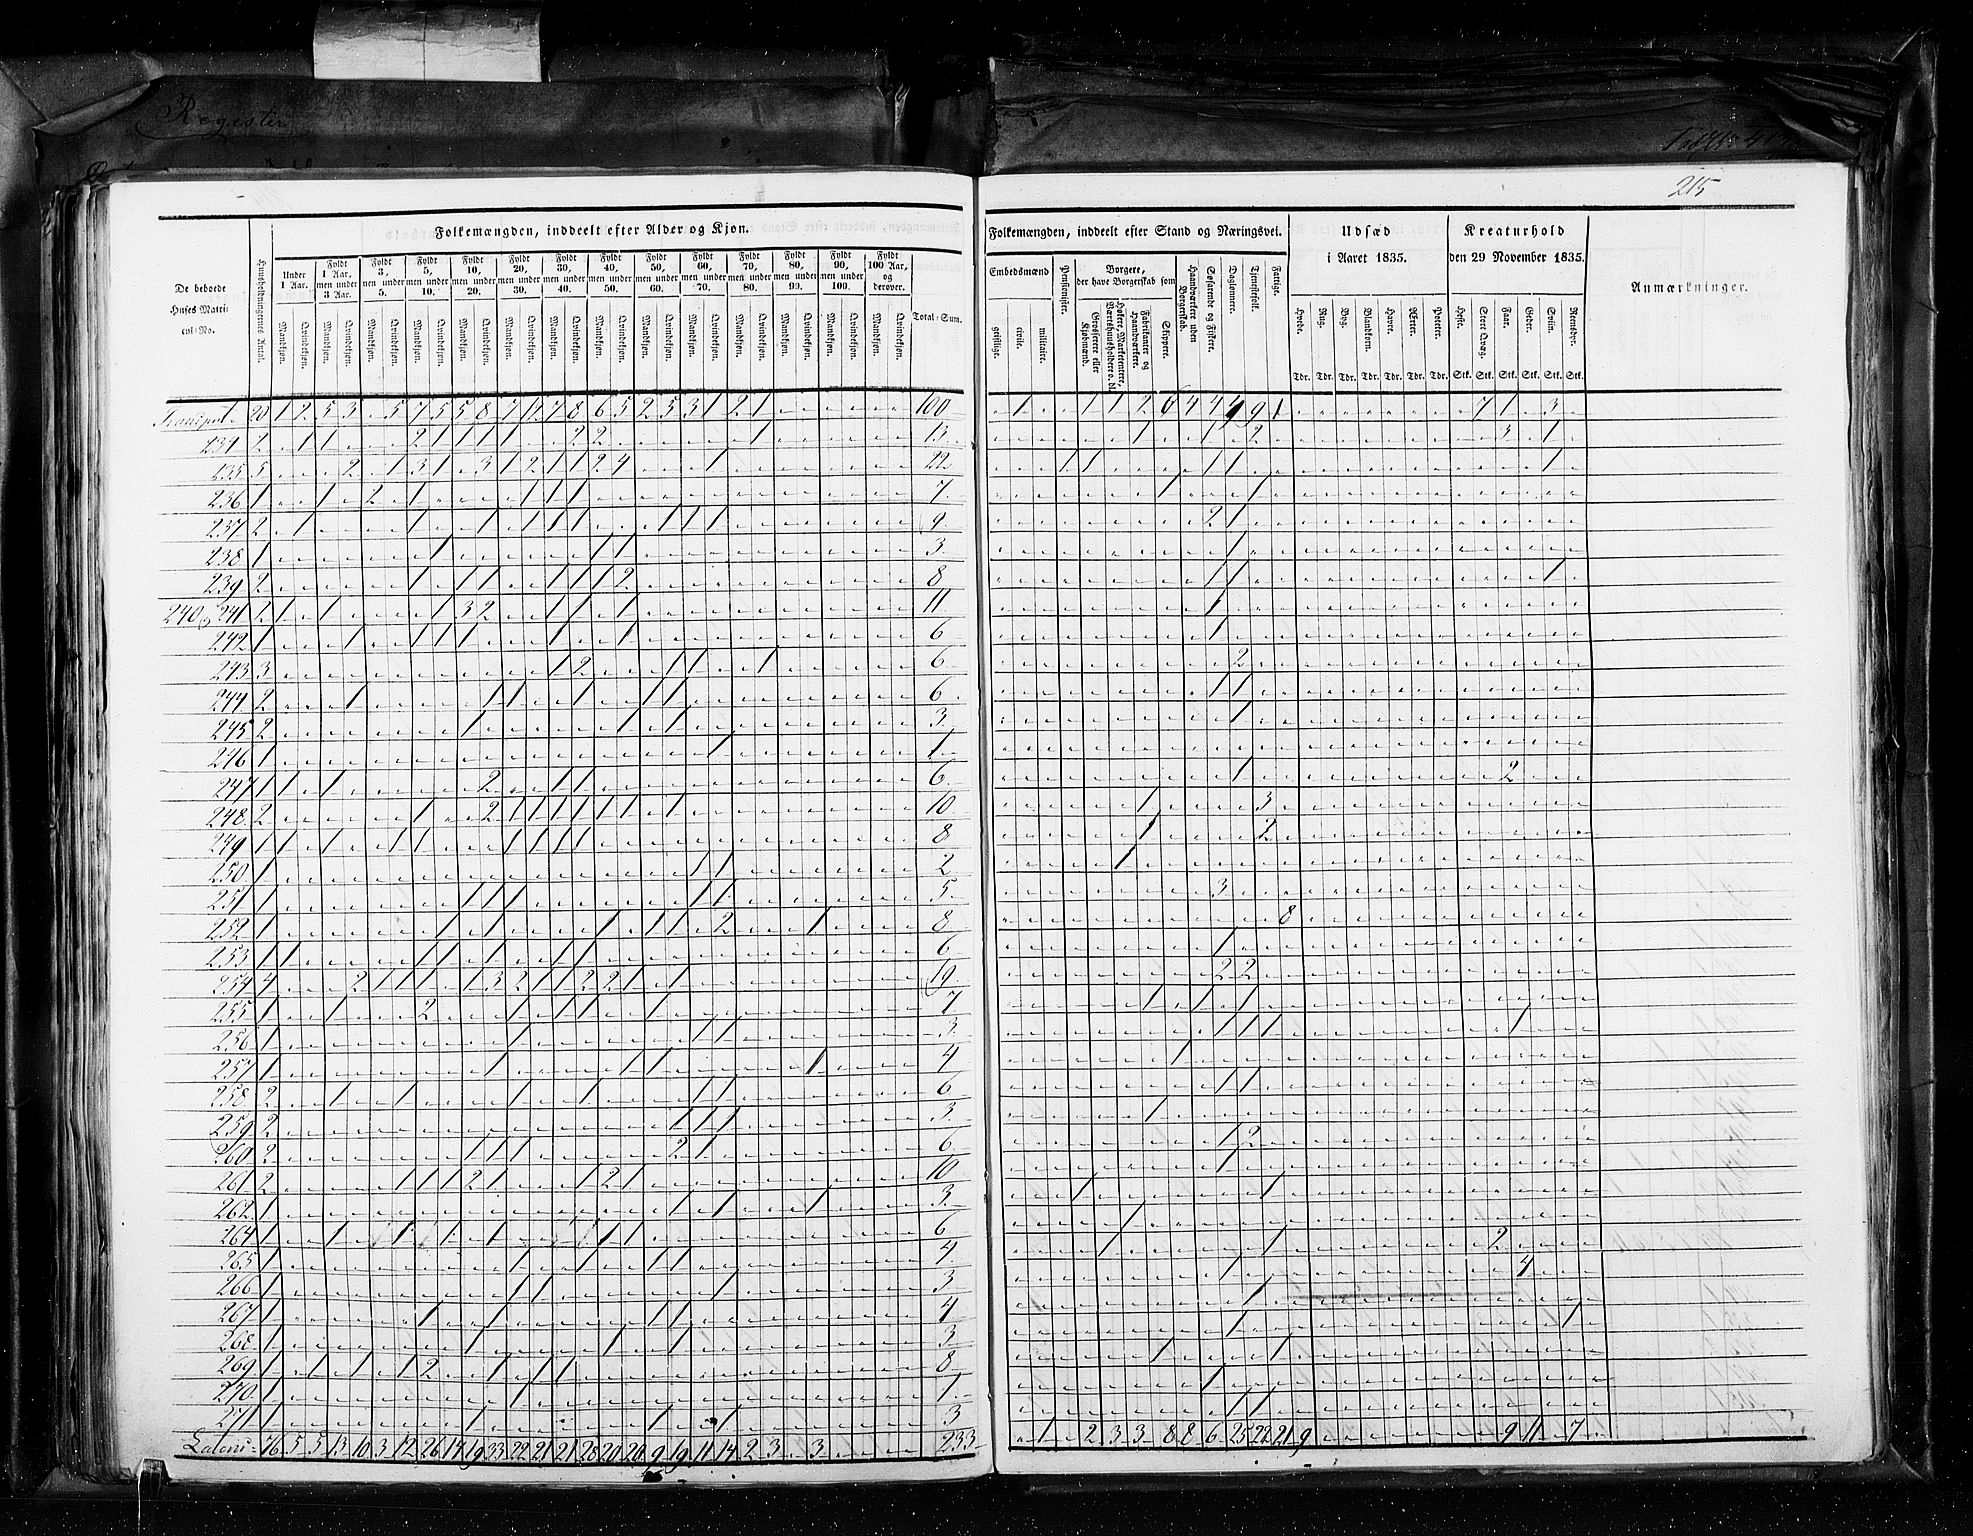 Register
215
Folkemængden, inddeelt efter Alder og Kjøn.
De beboede Huses Matricul=No.
Huusholdningernes Antal.
Under 1 Aar.
Fyldt 1 Aar, men under 3 Aar.
Fyldt 3, men under 5.
Fyldt 5, men under 10.
Fyldt 10, men under 20.
Fyldt 20, men under 30.
Fyldt 30, men under 40.
Fyldt 40, men under 50.
Fyldt 50, men under 60.
Fyldt 60, men under 70.
Fyldt 70, men under 80.
Fyldt 80, men under 90.
Fyldt 90, men under 100.
Fyldt 100 Aar, og derover.
Total=Sum.
Mandkjøn. Qvindekjøn.
Folkemængden, inddeelt efter Stand og Næringsvei.
Embedsmænd
geistlige. civile. militaire.
Pensionister.
Borgere, der have Borgerskab som
Grosserere eller Kjøbmænd.
Høkere, Marketentere, Værtshuusholdere o. dl.
Fabrikanter og Haandværkere.
Skippere.
Haandværkere uden Borgerskab.
Søfarende og Fiskere.
Daglønnere.
Tjenestefolk.
Fattige.
Udsæd i Aaret 1835.
Hvede. Rug. Byg. Blandkorn. Havre. Ærter. Poteter.
Tdr. Tdr. Tdr. Tdr. Tdr. Tdr. Tdr.
Kreaturhold den 29 November 1835.
Heste. Stort Qvæg. Faar. Geder. Sviin. Rensdyr.
Stk. Stk. Stk. Stk. Stk. Stk.
Anmærkninger.
Transport 20 1 2 5 3 5 7 5 5 8 7 12 7 8 6 5 2 5 3 1 2 1 100 1 1 1 2 6 4 4 9 9 1 7 1 3
234 2 1 1 2 1 1 1 1 1 2 2 1 13 1 1 2 3 1
235 5 2 1 3 1 3 1 2 1 1 2 4 1 22 1 1 1 1 1
236 1 1 2 1 1 1 1 7 1 1
237 2 1 1 1 1 1 1 1 1 1 9 2 1
238 1 1 1 1 3 1
239 2 1 1 1 1 1 1 2 8 1 1 1
240 & 241 2 1 1 1 3 2 1 1 1 11 1
242 1 1 1 1 1 1 1 6 1
243 3 1 2 1 1 1 6 2
244 2 1 1 1 1 1 1 6 1 1
245 2 1 1 1 3 1
246 1 1 1
247 1 1 1 2 1 1 6 1 2
248 2 1 2 1 1 1 1 1 1 1 10 1 3
249 1 1 1 1 1 1 1 1 1 8 1 2
250 1 1 1 2 1
251 1 1 1 1 1 1 5 3
252 1 1 1 1 1 1 2 1 8 8
253 1 1 1 1 1 1 1 6 1
254 4 2 1 1 1 1 3 2 1 1 2 2 1 1 19 2 2
255 1 1 2 1 1 1 1 7 1 1 1
256 1 1 1 1 3 1 1 1 1
257 1 1 1 1 1 4 1
258 2 1 1 1 1 1 1 6 1 1
259 2 1 1 1 3 1
260 2 1 1 1 2 1 6 1 2
261 2 1 1 1 2 1 1 2 1 10 1
262 1 1 1 1 3 1 1
264 1 1 1 1 1 1 1 6 1
265 1 1 1 1 1 4 1 1 2
266 1 1 1 1 3 1 4
267 1 1 1 1 1 4 1
268 1 1 1 1 3 1 1
269 1 1 1 1 2 1 1 1 8 1 1
270 1 1 1 1
271 1 1 1 1 3 1 1
Lateris 76 5 5 13 10 3 12 26 14 19 33 22 21 21 28 20 20 9 19 11 14 2 3 3 233 1 2 3 3 8 8 6 25 22 21 9 9 11 7